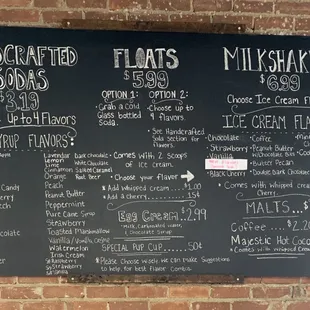 CRAFTED
SODAS
$3.19
Up to 4 Flavors
SYRUP FLAVORS:
Lavender
Lemon
Lime
Cinnamon
Orange
Peach
Peanut Butter
Peppermint
Pure Cane Syrup
Strawberry
Toasted Marshmallow
Vanilla
Watermelon
Dark Chocolate
White Chocolate
Salted Caramel
Root Beer
Irish Cream
Candy
Berry
FLOATS
$5.99
OPTION 1:
• Grab a Cold
Glass bottled
Soda.
OPTION 2:
• Choose up to
4 flavors.
• See Handcrafted
Soda Section
for options.
• Comes with 2 Scoops
of ice cream.
• Choose your flavor
* Add whipped cream $1.00
* Add a Cherry .50
Egg Cream $2.99
Milk, Carbonated water,
& Chocolate Syrup
SPECIAL PUP CUP 50¢
* Please Choose wisely. We can make Suggestions
to help, for best flavor Combo
MILKSHAKE
$6.99
Choose Ice Cream
ICE CREAM FLA
• Chocolate
• Strawberry
• Vanilla
• Black Cherry
• Coffee
• Peanut Butter
w/chocolate
• Butter Pecan
• Double Dark Chocolate
* Comes with whipped Cream
Cherry.
MALTS
Coffee $2.20
Majestic Hot Cocoa
* Comes with whipped Cream